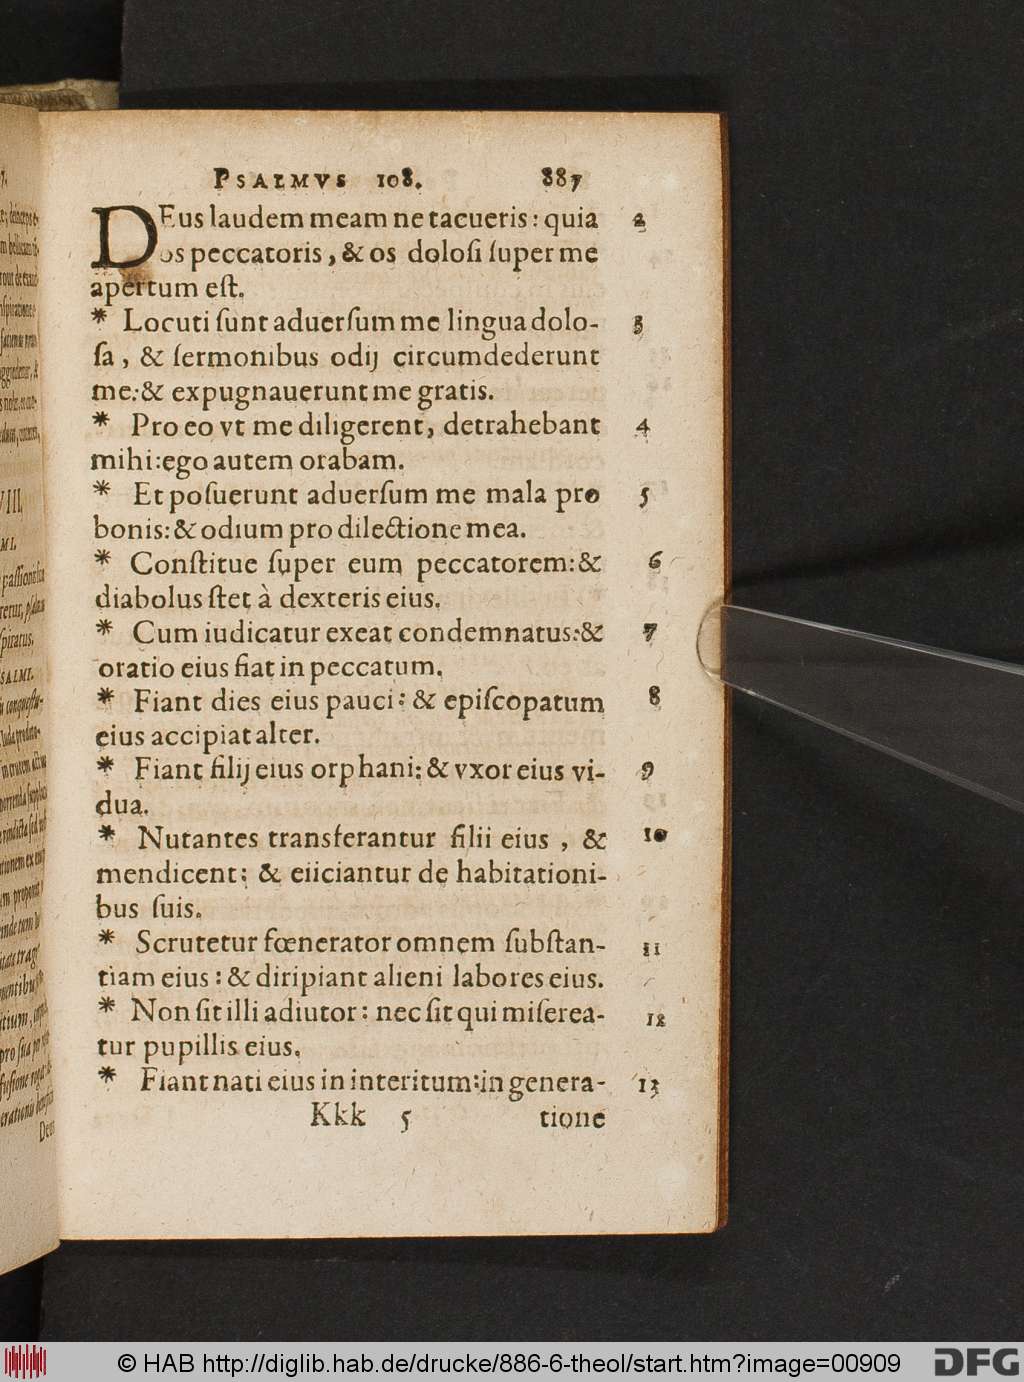 PSALMVS 108. 887
DEus laudem meam ne tacueris: quia 2
os peccatoris, & os dolosi super me
apertum est.
* Locuti sunt aduersum me lingua dolo- 3
sa, & sermonibus odij circumdederunt
me: & expugnauerunt me gratis.
* Pro eo vt me diligerent, detrahebant 4
mihi: ego autem orabam.
* Et posuerunt aduersum me mala pro 5
bonis: & odium pro dilectione mea.
* Constitue super eum peccatorem: & 6
diabolus stet à dexteris eius.
* Cum iudicatur exeat condemnatus: & 7
oratio eius fiat in peccatum.
* Fiant dies eius pauci: & episcopatum 8
eius accipiat alter.
* Fiant filij eius orphani: & vxor eius vi- 9
dua.
* Nutantes transferantur filii eius, & 10
mendicent: & eiiciantur de habitationi-
bus suis.
* Scrutetur fœnerator omnem substan- 11
tiam eius: & diripiant alieni labores eius.
* Non sit illi adiutor: nec sit qui miserea- 12
tur pupillis eius.
* Fiant nati eius in interitum: in genera- 13
Kkk 5 tione
© HAB http://diglib.hab.de/drucke/886-6-theol/start.htm?image=00909
DFG